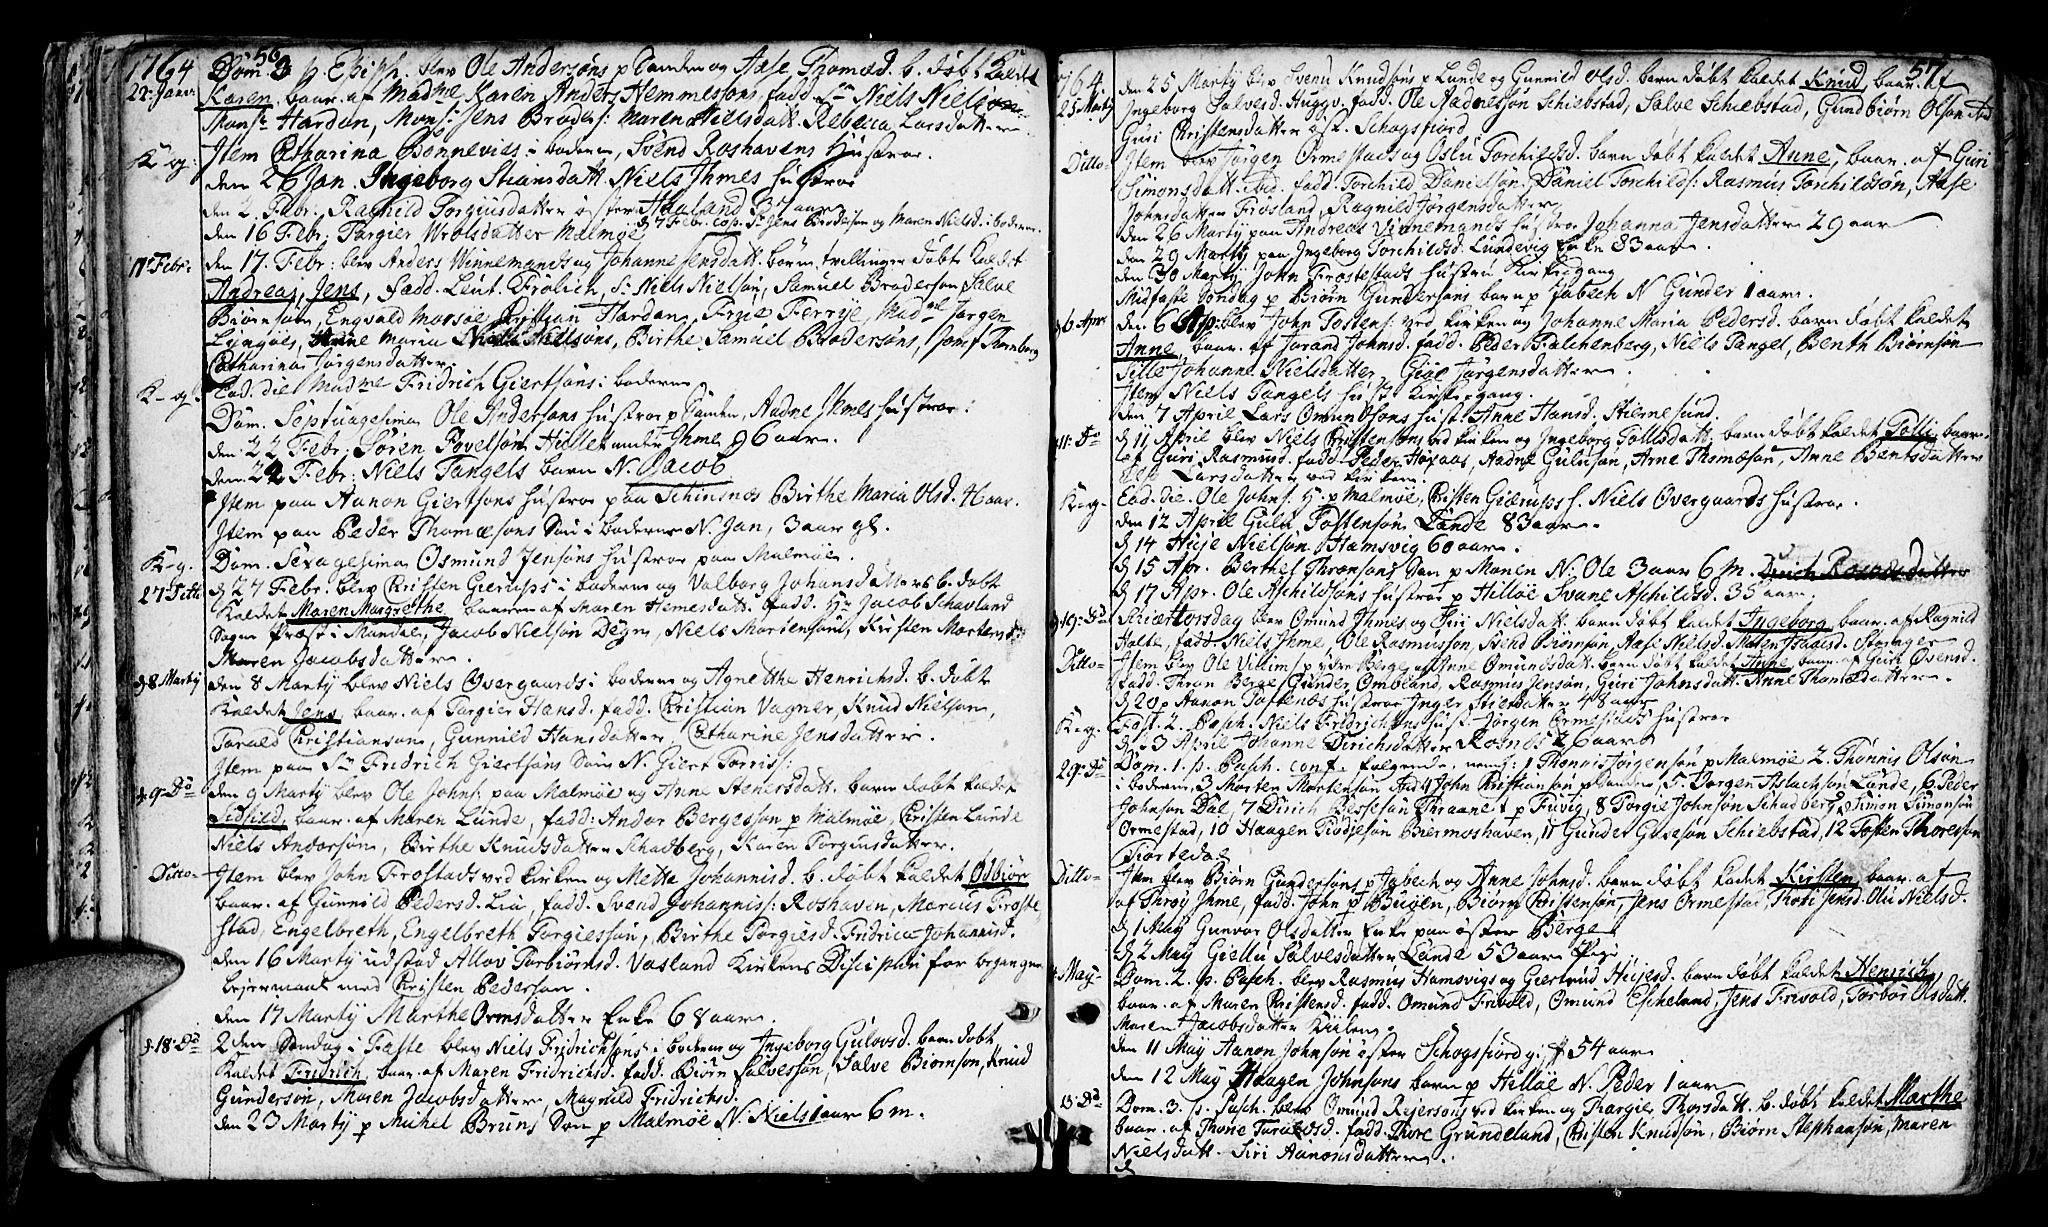 56
1764
Dom. 3 p. Epiph. blev Ole Andersøns p Sanden og Aase Thomæd. b. døbt Kaldet
22 Janr:
Karen, baar. af Madme Karen Anders Hemmessøns, fadd. Sr Niels Nielsøn
Monsr Hardon, Monsr Jens Broders: Maren Nielsdatt. Rebecca Larsdatter
K-g:
Item Catharina Bonnevies i boderne, Svend Roshavens Hustroe.
den 26 Jan. Ingeborg Stiansdatt. Niels Ihmes hustroe
den 2. Febr: Ragnild Torgiusdatter øster Haaland 37 aar
d 7 Febr. cop. Sr Jens Brodersøn og Maren Nielsd. i boderne.
den 16 Febr: Torgier Wrolsdatter Malmøe
17 Febr:
den 17. Febr: blev Anders Winnemands og Johanne Jensdatt. børn, tvillinger døbt kaldet
Andreas, Jens, fadd. Leut. Frolich, Sr Niels Nielsøn, Samuel Brodersøn, Salve
Biørnsøn, Engvald Morsøe, Christian Hardon, Frue Ferrye, Madme Jørgen
Lyngøes, Anne Maria Niels Nielsøns, Birthe Samuel Brodersøns, Josef Tornborg
Catharina Jørgensdatter.
K-g
Ead. die Madme Fridrich Giertsøns i boderne
Dom. Septuagesima Ole Andersøns hustroe p Sanden, Aadne Ihmes hustroe.
den 22 Febr: Søren Povelsøn Hillet under Ihme 96 aar.
den 24 Febr: Niels Tangels barn N. Jacob
Item paa Aanon Giertsøns hustroe paa Schinsnes Birthe Maria Olsd. 40 aar.
Item paa Peder Thomæsøns Søn i boderne N. Jan, 3 aar gl.
K-g.
Dom. Sexagesima Osmund Jensøns hustroe paa Malmøe.
27 Ditto
d 27 Febr. blev Christen Gierups i boderne og Valborg Johansdatters b. døbt
kaldet Maren Margrethe baaren af Maren Hemesdatt. fadd. Hr Jacob Schavland
Sogne Præst i Mandal, Jacob Nielsøn Degn, Niels Mortensøn, Kirsten Mortensd:
Maren Jacobsdatter.
d 8 Marty
den 8 Marty blev Niels Overgaards i boderne og Agnethe Henrichsd. b. døbt
kaldet Jens, baar. af Torgier Hansd. fadd. Christian Vagner, Knud Nielsøn,
Torald Christiansøn, Gunnild Hansdatter, Catharine Jensdatter.
Item paa Sr Fridrich Giertsøns Søn N. Giert Torris:
d 9 Do
den 9 Marty blev Ole Johns: paa Malmøe og Anne Stenersdatt. barn døbt kaldet
Sidseld, baar. af Maren Lunde, fadd: Andor Bergessøn p Malmøe, Christen Lunde
Niels Andersøn, Birthe Knudsdatter Schadberg, Karen Torgiusdatter.
Ditto-
Item blev John Frostads ved kirken og Mette Johannisd. b. døbt kaldet Odbiør
baar. af Gunnild Pedersd. Liu, fadd. Svend Johannis: Roshaven, Marcus Froste
stad, Engelbreth, Engelbreth Torgiessøn, Birthe Torgiesd. Fridrica Johannisd.
den 16 Marty udstod Allov Torbiørnsd. Vasland Kirkens Disciplin for begangne
lejermaal med Christen Pedersøn.
den 17 Marty Marthe Ormsdatter Enke 68 aar.
d 18 Do
2den Søndag i Faste blev Niels Fridrichsøns i boderne og Ingeborg Gulovsd. barn døbt
kaldet Fridrich, baar. af Maren Fridrichsd. fadd. Biørn Salvessøn, Salve Biørnsøn, Knud
Gundersøn, Maren Jacobsdatter, Magnild Fridrichsd.
den 23 Marty p Michel Bruns Søn p Malmøe N. Niels 1 aar 6 m.
57
1764.
25 Marty
den 25 Marty blev Svend Knudsøns p Lunde og Gunnild Olsd. barn døbt kaldet Knud, baar. af
Ingeborg Salvesd. Huggv. fadd. Ole Aadnessøn Schiebstad, Salve Schiebstad, Gundbiørn Olsøn
Guri Christensdatter øst. Schogsfiord
Ditto
Item blev Jørgen Ormestads og Oslu Torchildsd. barn døbt kaldet Anne, baar. af Guri
Simonsdatt. ibid. fadd. Torchild Danielsøn, Daniel Torchilds: Rasmus Torchildsøn, Aase
Johnsdatter Frøsland, Ragnild Jørgensdatter
den 26 Marty paa Andreas Vinnemands hustroe Johanna Jensdatter 29 aar
den 29 Marty paa Ingeborg Torchildsd. Lundevig Enke 83 aar.
den 30 Marty John Frostestads hustru kirkegang
Midfaste Søndag p Biørn Gundersøns barn p Jabech N. Gunder 1 aar.
d 6 Apr.
den 6 Apr: blev John Tostens: ved kirken og Johanne Maria Pedersd. barn døbt kaldet
Anne, baar. af Jorand Johnsd. fadd. Peder Falchenberg, Niels Tangel, Benth Biørnsøn
Sille Johanne Nielsdatter, Giøe Jørgensdatter.
Item Niels Tangels hust. kirkegang.
den 7 April Lars Omundsøns hust. Anne Hansd. Stiernesund.
d 11. Do
d 11 April blev Niels Christensøns ved kirken og Ingeborg Tollisdatt. barn døbt kaldet Tolli, baar-
af Guri Rasmusd. fadd. Peder Høyaas, Aadne Gulusøn, Arne Thomæsøn, Anne Bentsdatter
Else Larsdatter ved kirken.
K-g.
Ead. die. Ole Johns: H. p Malmøe, Christen Gierups h. Niels Overgaards hustroe.
den 12 April Gulu Tostensøn Lunde 83 aar.
d 14 Huje Nielsøn Hamsvig 60 aar.
d 15 Apr. Berthel Thronsøns Søn p Monen N. Ole 3 aar 6 M.
d 17 Apr. Ole Aschildsøns hustroe p Hilløe Svane Aschildsd. 35 aar.
d 19 Do
Skiærtorsdag blev Omund Ihmes og Siri Nielsdatt. barn døbt kaldet Ingeborg, baar. af Ragnild
Holte, fadd. Niels Ihme, Ole Rasmussøn, Svend Biørnsøn, Aase Nielsd. Stavanger
Ditto
Item blev Ole Villims: p ydre Berge og Anne Omundsdatt. barn døbt kaldet Anne baar. af Guri Evensd.
fadd. Thron Berge, Gunder Omdland, Rasmus Jensøn, Guri Johnsdatt. Anne Thomædatter.
d 20 p Aanon Tostensøns hustroe Inger Stiesdatter 48 aar
K-g.
Fest. 2. Pasch. Niels Fridrichsøns hust. Jørgen Ormestads hustroe
d 23 April Johanne Dirichsdatter Rosnes 26 aar
29 Do
Dom. 1. p. Pasch. conf. følgende, neml: 1 Thonnis Jørgensøn p Malmøe 2. Thønnis Olsøn
i boderne, 3 Morten Mortensøn ibid. 4 John Kristiansøn p Sanden, 5. Jørgen Aslachsøn Lunde, 6. Peder
Johnsøn Dal, 7 Dirich Bessesøn Thraanet p Fuvig, 8 Torgie Johnsøn Schadberg, 9 Simon Simonsøn
Ormestad, 10 Haagen Tiødjesøn Biermoshaven, 11 Gunder Gavesøn Schiebstad, 12 Tosten Thoressøn
Tiortedal
Ditto-
Item blev Biørn Gundersøns p Jabech og Anne Johnsd. barn døbt kaldet Kirsten baar. af
af Throy Ihme, fadd. John p Buøen, Biørn Christensøn, Jens Ormestad, Thore Jensd. Olu Nielsd.
d 1 May Gunvor Olsdatter Enke paa øster Berge
d 2 May Giellu Salvesdatter Lunde 53 aar Pige
6 May-
Dom. 2. p. Pasch. blev Rasmus Hamsvigs og Giertrud Hujesd. barn døbt kaldet Henrich,
baar. af Maren Christensd. fadd. Omund Frivold, Omund Escheland, Jens Frivold, Torbor Olsdatt.
Maren Jacobsdatter Kisleng.
den 11 May Aanon Johnsøn øster Schogsfiord gift 54 aar.
den 12 May Haagen Johnsøns barn p Hilløe N. Peder 1 aar
13. Do
Dom. 3. p. Pasch. blev Omund Reiersøns ved kirken og Thorgier Thorsdatt. b. døbt kaldet Marthe
baar. af Thore Taraldsd. fadd. Thore Grundeland, Christen Knudsøn, Biørn Stephansøn, Maren
Nielsdatt. Siri Aanonsdatter.